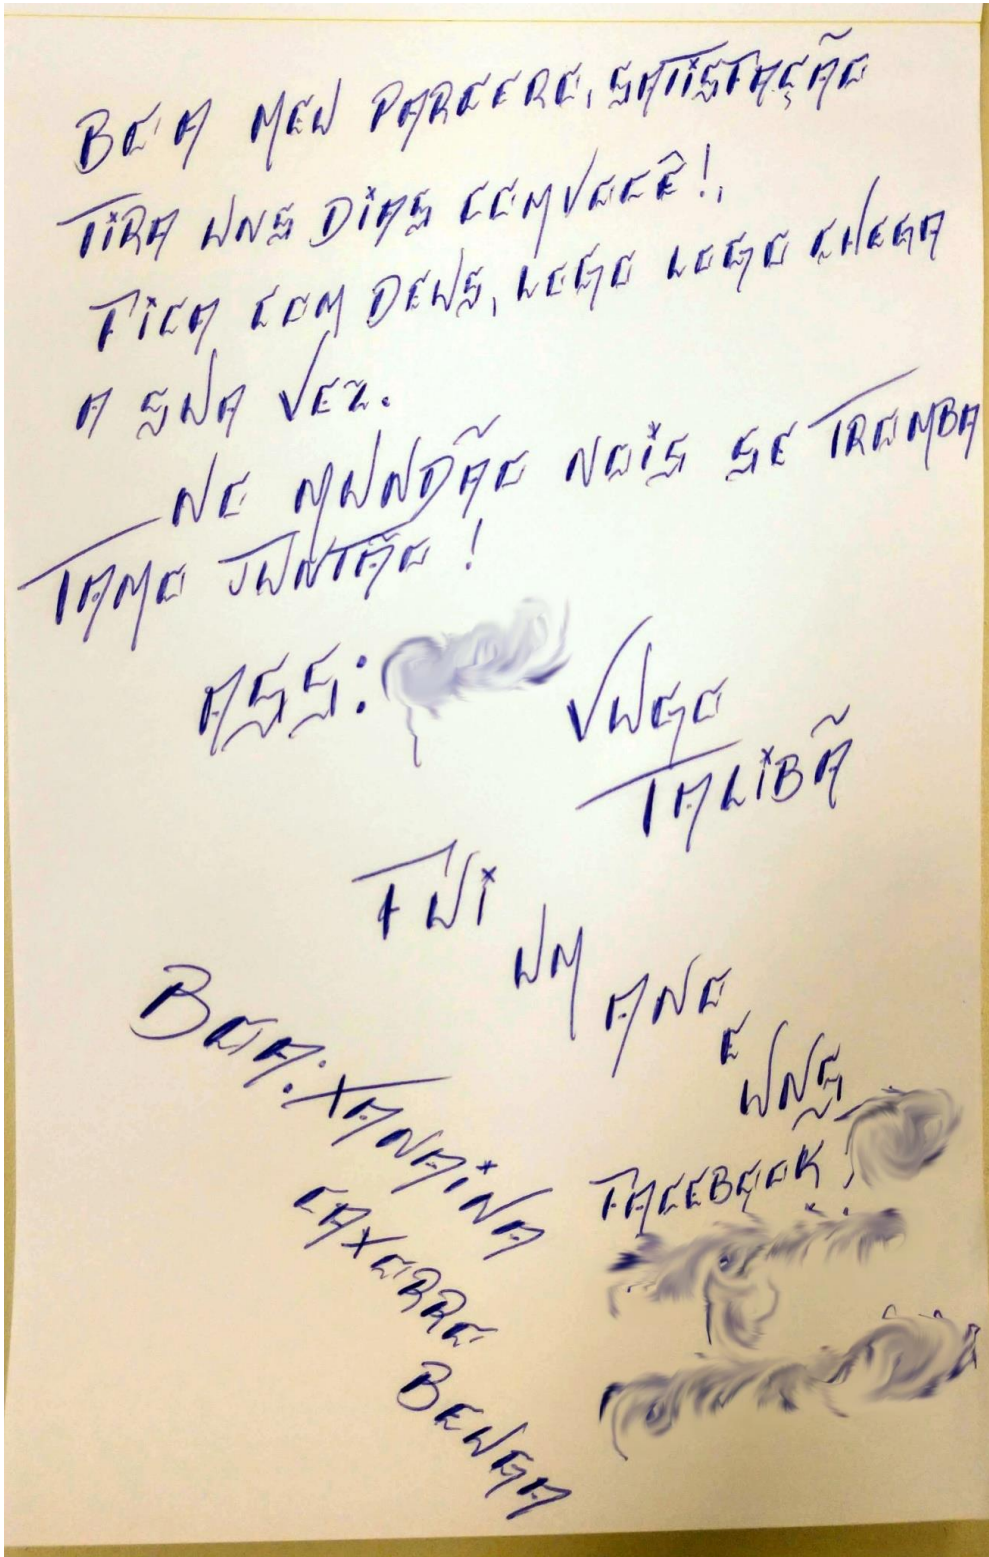 BOA MEU PARCERO, SATISFAÇÃO
TIRA UNS DIAS COM VOCÊ!,
FICA COM DEUS, LOGO LOGO CHEGA
A SUA VEZ.
NO MUNDÃO NOIS SE TROMBA
TAMO JUNTÃO!
ASS:
VUGO
TALIBÃ
FUI
UM
ANO
E
UNS
BOA: XANAINA
CAXORRO
BEUGA
FACEBOOK: